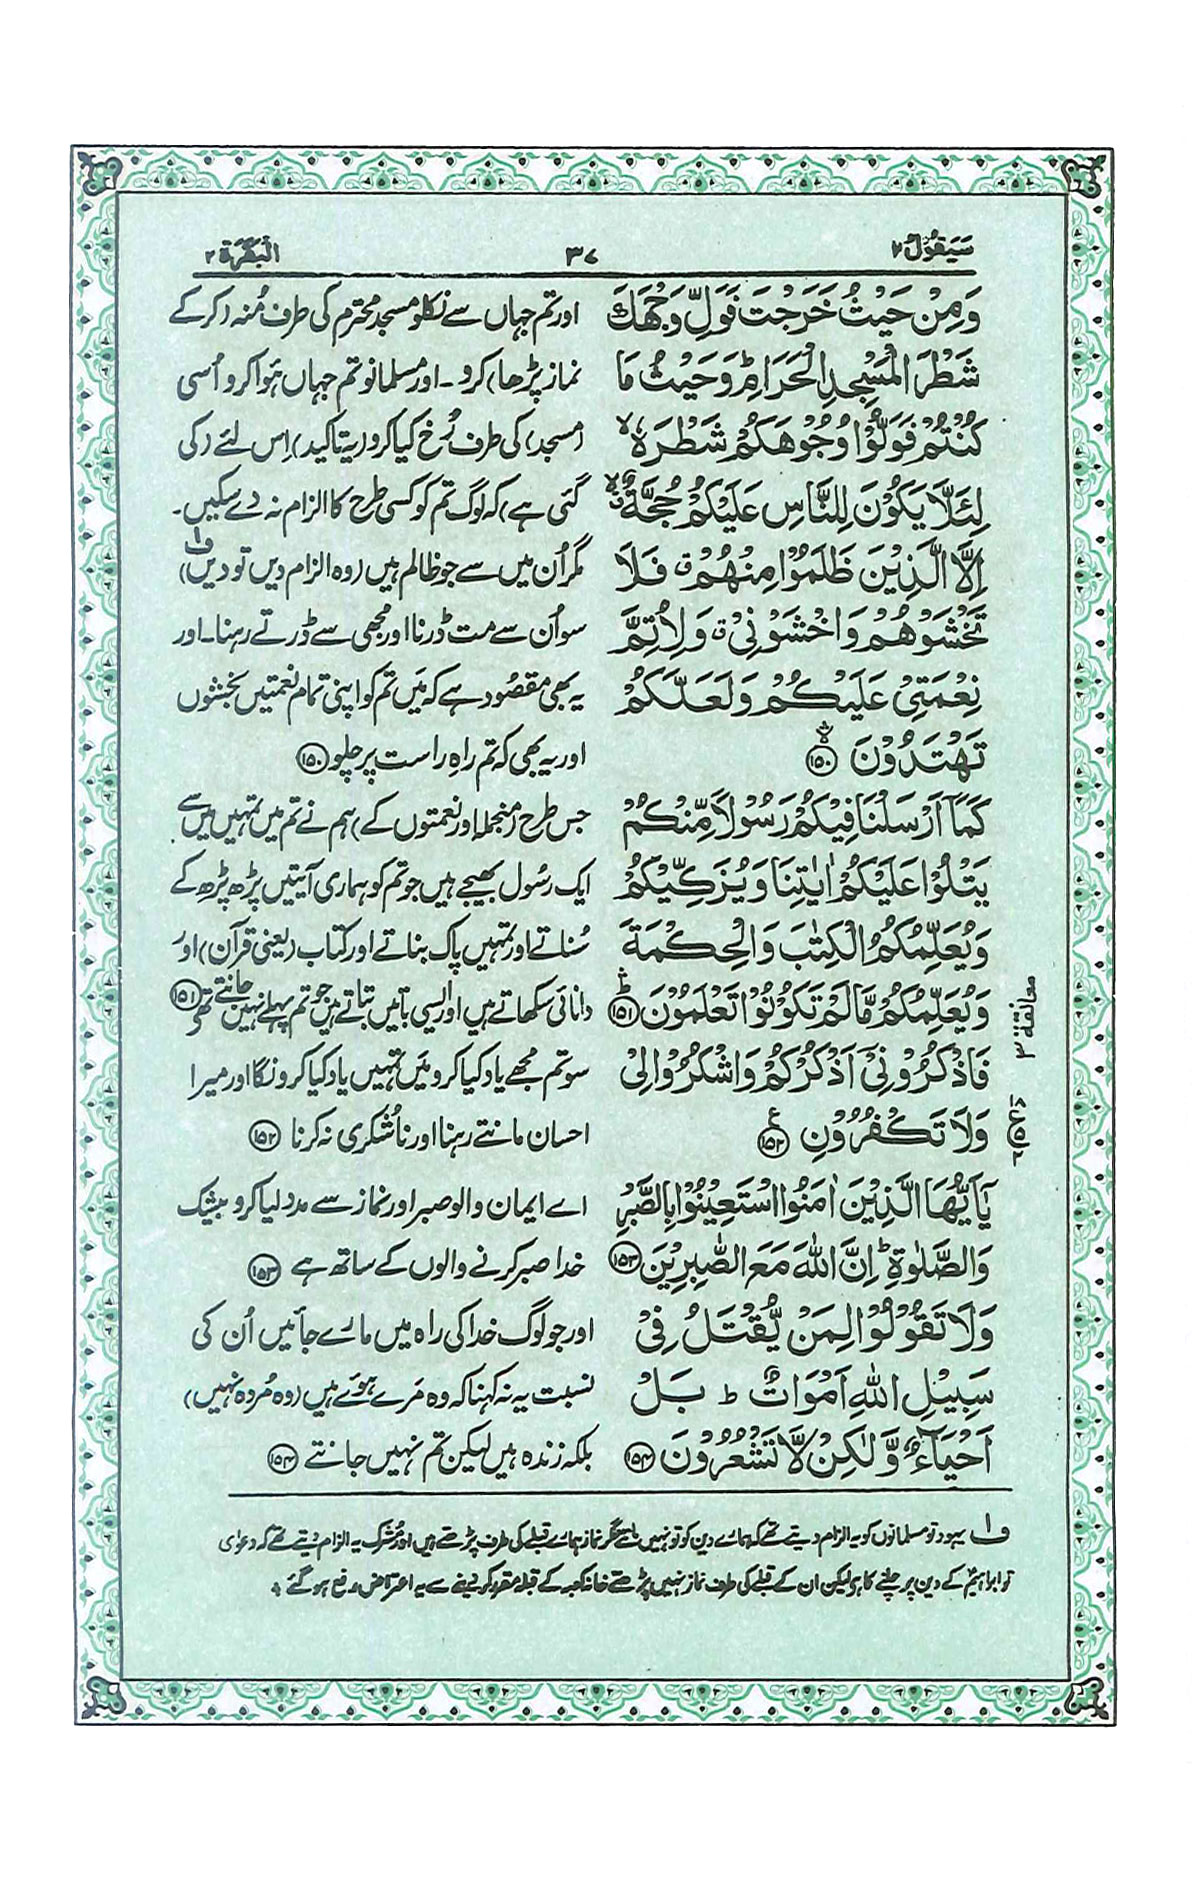 سَيَقُوۡلُ ٢
٣٧
اَلۡبَقَرَة ٢
وَمِنۡ حَيۡثُ خَرَجۡتَ فَوَلِّ وَجۡهَكَ
شَطۡرَ الۡمَسۡجِدِ الۡحَرَامِ ؕ وَحَيۡثُ مَا
كُنۡتُمۡ فَوَلُّوۡا وُجُوۡهَكُمۡ شَطۡرَهٗ ۙ
لِئَلَّا يَكُوۡنَ لِلنَّاسِ عَلَيۡكُمۡ حُجَّةٌ ۙ
اِلَّا الَّذِيۡنَ ظَلَمُوۡا مِنۡهُمۡ ۚ فَلَا
تَخۡشَوۡهُمۡ وَاخۡشَوۡنِىۡ ۚ وَلِاُتِمَّ
نِعۡمَتِىۡ عَلَيۡكُمۡ وَلَعَلَّكُمۡ
تَهۡتَدُوۡنَ ۙ ﴿۱۵۰﴾
كَمَآ اَرۡسَلۡنَا فِيۡكُمۡ رَسُوۡلًا مِّنۡكُمۡ
يَتۡلُوۡا عَلَيۡكُمۡ اٰيٰتِنَا وَيُزَكِّيۡكُمۡ
وَيُعَلِّمُكُمُ الۡكِتٰبَ وَالۡحِكۡمَةَ
وَيُعَلِّمُكُمۡ مَّا لَمۡ تَكُوۡنُوۡا تَعۡلَمُوۡنَ ۛ ﴿۱۵۱﴾
فَاذۡكُرُوۡنِىۡٓ اَذۡكُرۡكُمۡ وَاشۡكُرُوۡا لِىۡ
وَلَا تَكۡفُرُوۡنِ ﴿۱۵۲﴾ ع
يٰٓاَيُّهَا الَّذِيۡنَ اٰمَنُوا اسۡتَعِيۡنُوۡا بِالصَّبۡرِ
وَالصَّلٰوةِ ؕ اِنَّ اللّٰهَ مَعَ الصّٰبِرِيۡنَ ﴿۱۵۳﴾
وَلَا تَقُوۡلُوۡا لِمَنۡ يُّقۡتَلُ فِىۡ
سَبِيۡلِ اللّٰهِ اَمۡوَاتٌ ؕ بَلۡ
اَحۡيَآءٌ وَّلٰكِنۡ لَّا تَشۡعُرُوۡنَ ﴿۱۵۴﴾
اور تم جہاں سے نکلو مسجد محترم کی طرف مُنہ (کر کے
نماز پڑھا) کرو۔ اور مسلمانو تم جہاں ہوا کرو اُسی
(مسجد) کی طرف رُخ کیا کرو (یہ تاکید) اِس لئے (کی
گئی ہے) کہ لوگ تم کو کسی طرح کا الزام نہ دے سکیں۔
مگر اُن میں سے جو ظالم ہیں (وہ الزام دیں تو دیں) ف۱
سو اُن سے مت ڈرنا اور مجھی سے ڈرتے رہنا۔ اور
یہ بھی مقصُود ہے کہ مَیں تم کو اپنی تمام نعمتیں بخشوں
اور یہ بھی کہ تم راہِ راست پر چلو ﴿۱۵۰﴾
جس طرح (منجملہ اور نعمتوں کے) ہم نے تم میں تمہیں میں سے
ایک رسُول بھیجے ہیں جو تم کو ہماری آیتیں پڑھ پڑھ کے
سُناتے اور تمہیں پاک بناتے اور کتاب (یعنی قرآن) اور
دانائی سکھاتے ہیں اور ایسی باتیں بتاتے ہیں جو تم پہلے نہیں جانتے تھے ﴿۱۵۱﴾
سو تم مجھے یاد کیا کرو مَیں تمہیں یاد کیا کروں گا اور میرا
احسان مانتے رہنا اور ناشُکری نہ کرنا ﴿۱۵۲﴾
اے ایمان والو صبر اور نماز سے مدد لیا کرو بیشک
خدا صبر کرنے والوں کے ساتھ ہے ﴿۱۵۳﴾
اور جو لوگ خدا کی راہ میں مارے جائیں اُن کی
نسبت یہ نہ کہنا کہ وہ مَرے ہوئے ہیں (وہ مُردہ نہیں)
بلکہ زندہ ہیں لیکن تم نہیں جانتے ﴿۱۵۴﴾
معانقة ٣
ف۱ یہود تو مسلمانوں کو یہ الزام دیتے تھے کہ ہمارے دین کو تو نہیں مانتے مگر نماز ہمارے قبلے کی طرف پڑھتے ہیں اور مُشرک یہ الزام دیتے تھے کہ دعوٰی
تو ابراہیمؑ کے دین پر چلنے کا ہے لیکن ان کے قبلے کی طرف نماز نہیں پڑھتے خانہ کعبہ کے قبلہ مقرر کر دینے سے یہ اعتراض رفع ہو گئے